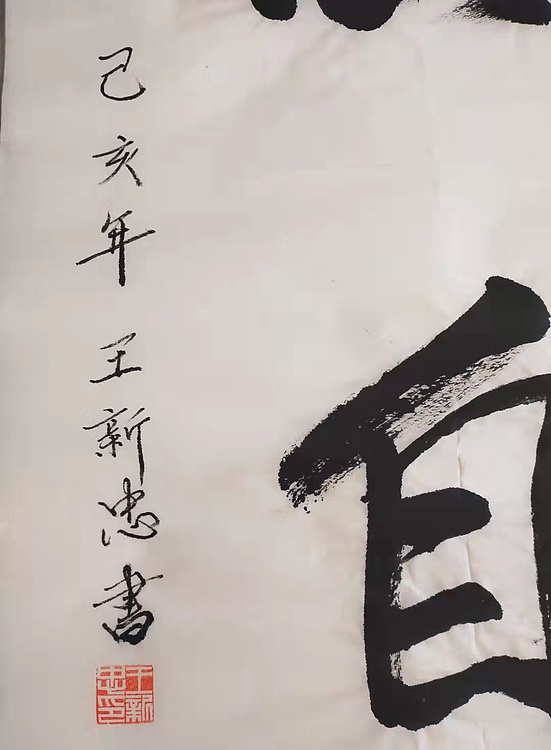 自
己亥年 王新忠書
王新忠印